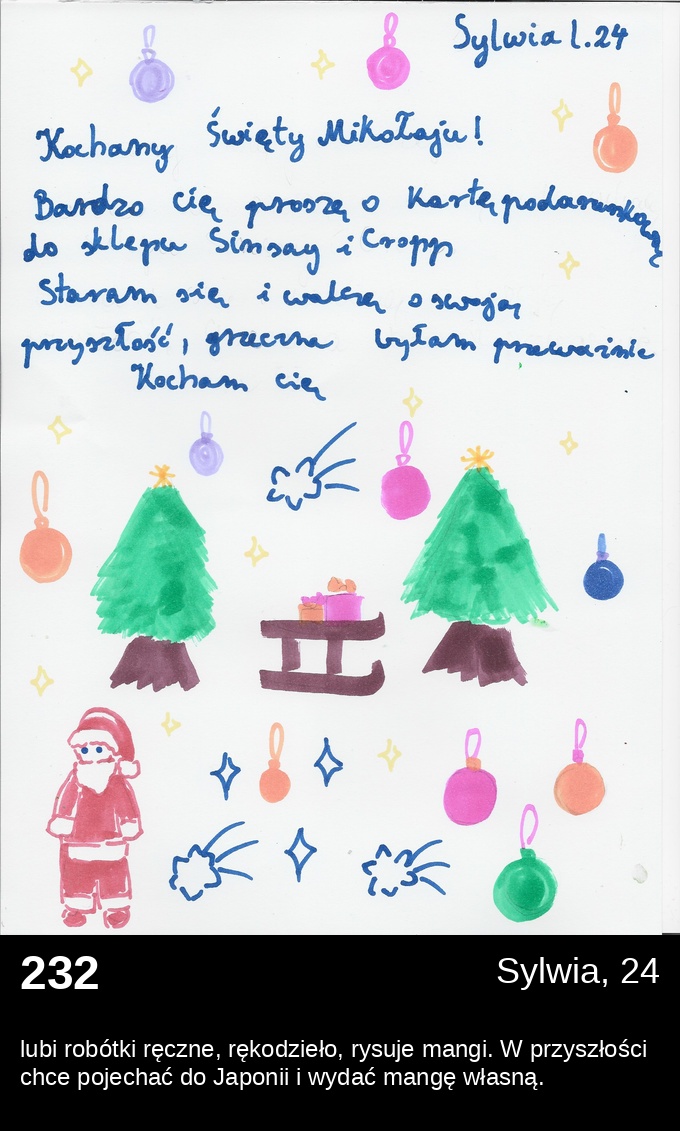 Sylwia l.24
Kochany Święty Mikołaju!
Bardzo cię proszę o kartę podarunkową
do sklepu Sinsay i Cropp
Staram się i walczę o swoją
przyszłość, grzeczna byłam przeważnie
Kocham cię
232
Sylwia, 24
lubi robótki ręczne, rękodzieło, rysuje mangi. W przyszłości
chce pojechać do Japonii i wydać mangę własną.